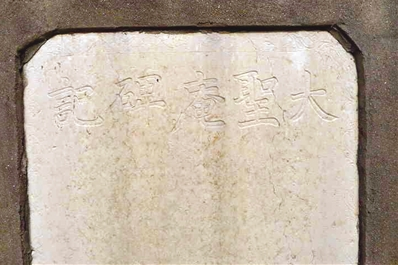 大聖庵碑記